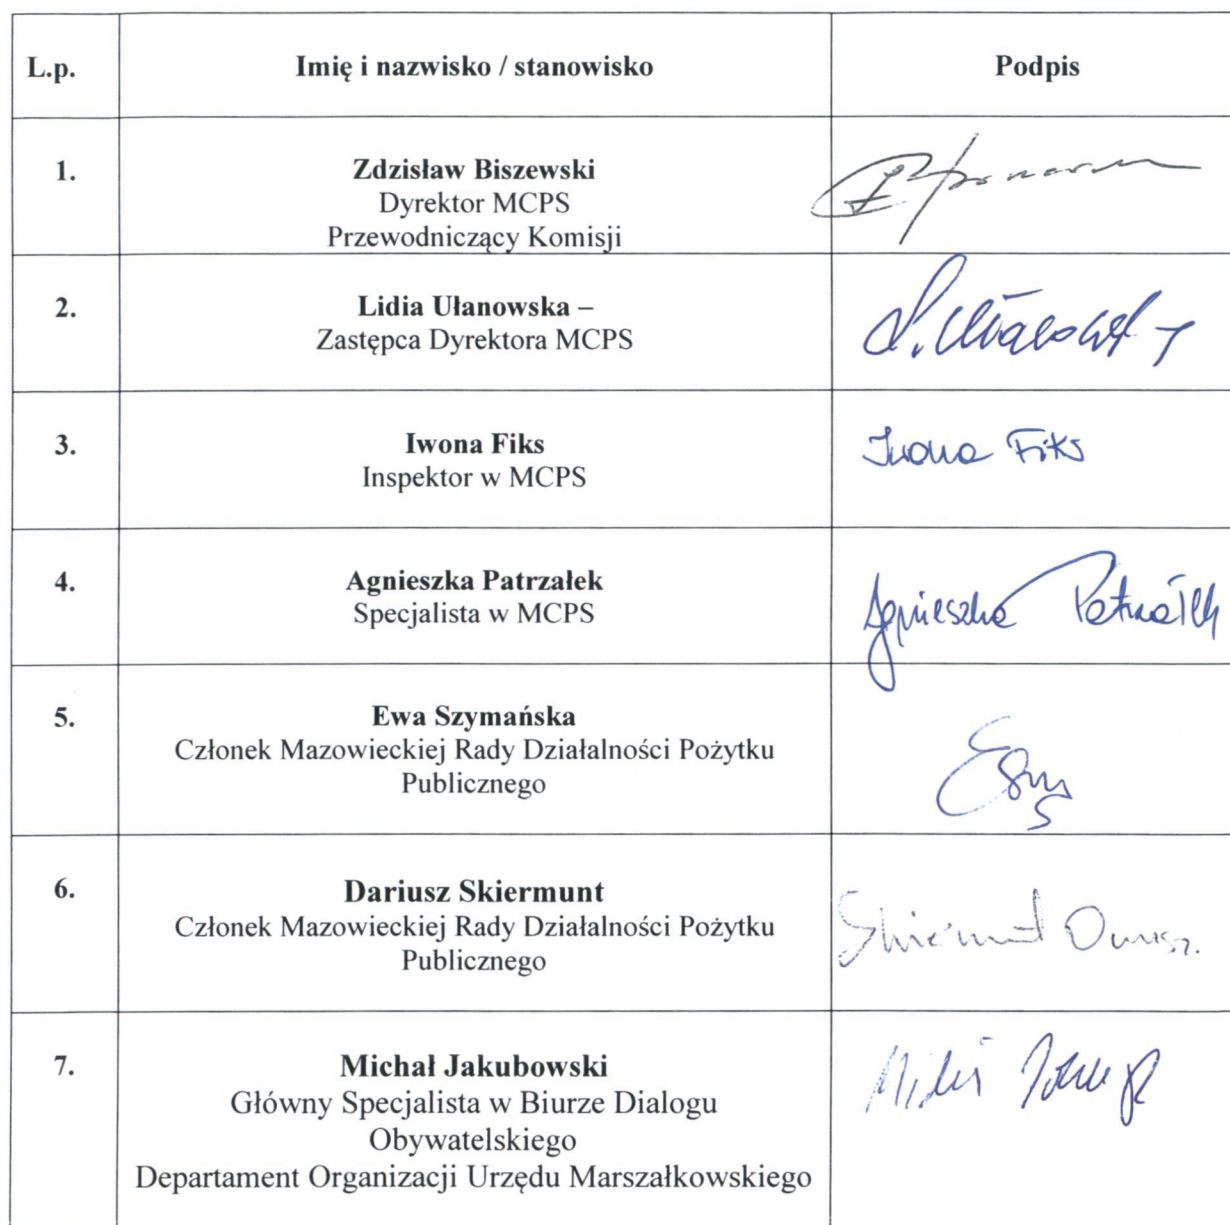 L.p. Imię i nazwisko / stanowisko Podpis
1. Zdzisław Biszewski
Dyrektor MCPS
Przewodniczący Komisji
2. Lidia Ułanowska –
Zastępca Dyrektora MCPS
3. Iwona Fiks Iwona Fiks
Inspektor w MCPS
4. Agnieszka Patrzałek
Specjalista w MCPS Agnieszka Patrzałek
5. Ewa Szymańska
Członek Mazowieckiej Rady Działalności Pożytku
Publicznego
6. Dariusz Skiermunt
Członek Mazowieckiej Rady Działalności Pożytku
Publicznego
7. Michał Jakubowski
Główny Specjalista w Biurze Dialogu
Obywatelskiego
Departament Organizacji Urzędu Marszałkowskiego